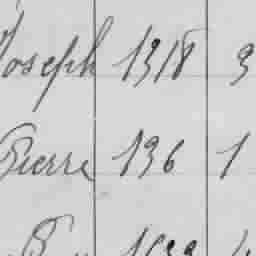 Joseph 1318 3
Pierre 136 1